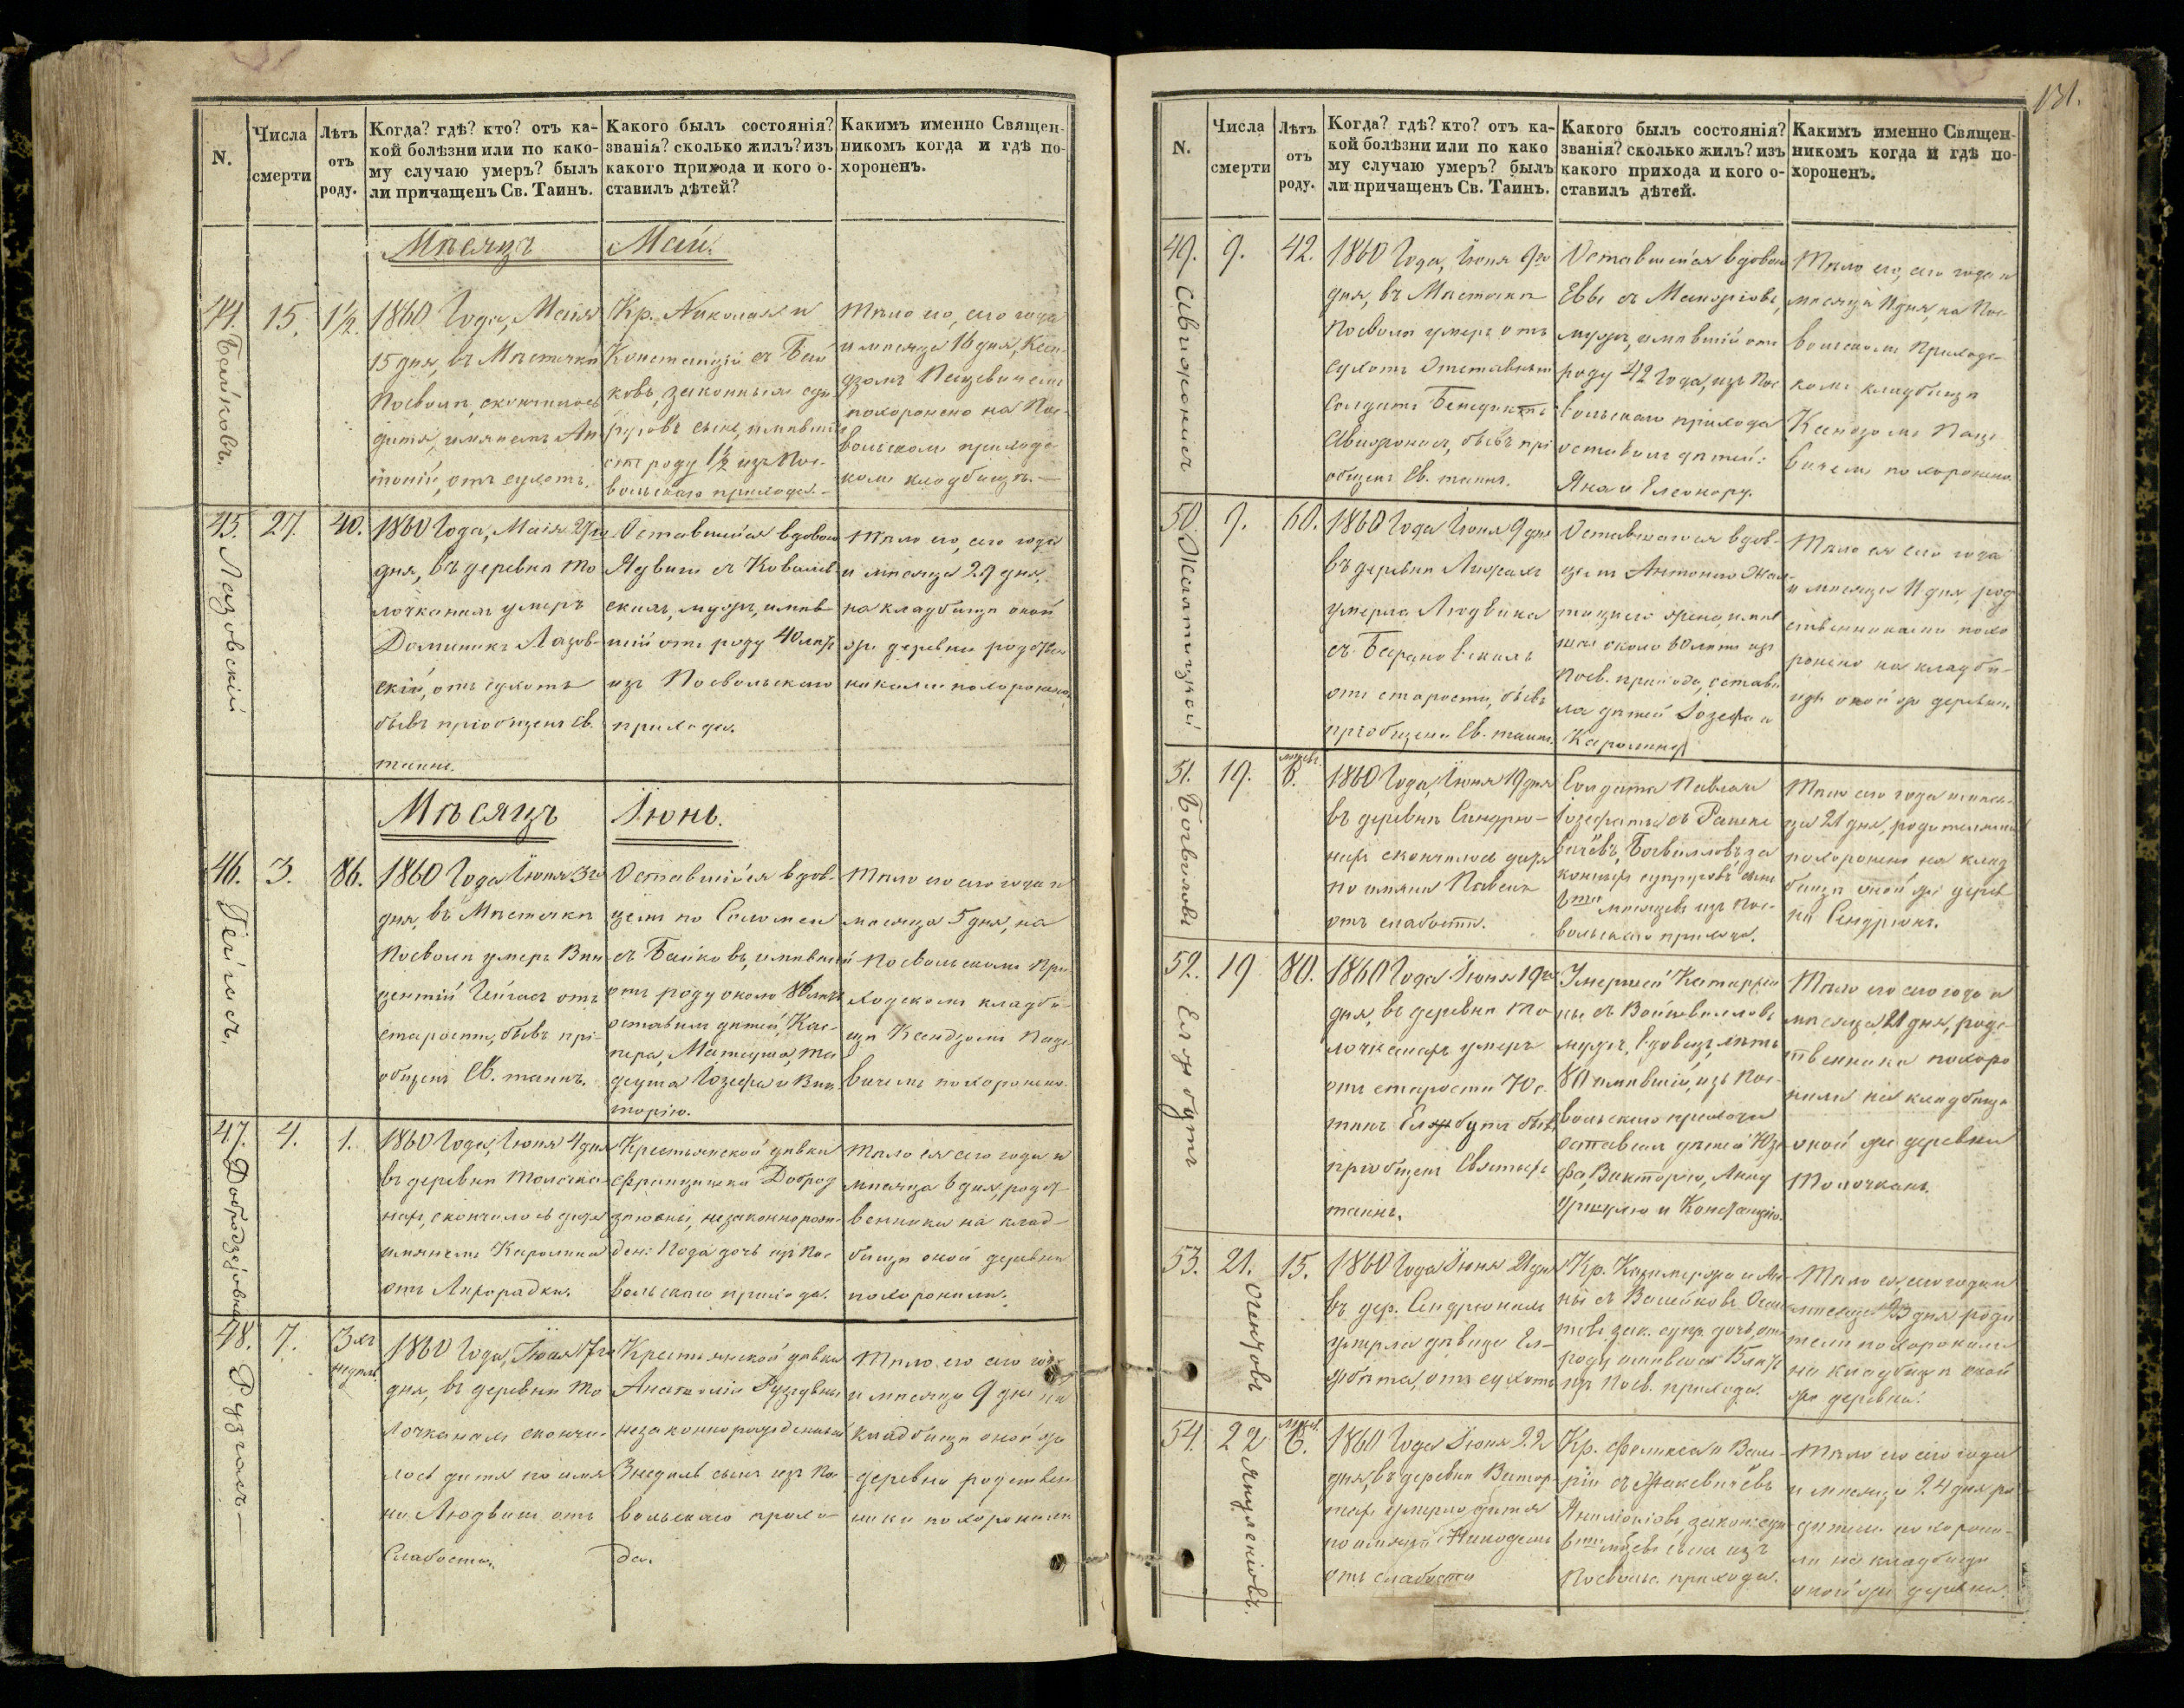 N.
Числа
смерти
Лѣтъ
отъ
роду.
Когда? гдѣ? кто? отъ ка-
кой болѣзни или по како-
му случаю умеръ? былъ
ли причащенъ Св. Таинъ.
Какого былъ состоянія?
званія? сколько жилъ? изъ
какого прихода и кого о-
ставилъ дѣтей?
Какимъ именно Священ-
никомъ когда и гдѣ по-
хороненъ.
Мѣсяцъ Май.
44.
Байковъ.
15.
1½.
1860 Года, Маія
15 дня, въ Мѣстечкѣ
Посволѣ, скончилось
дитя, имянемъ Ан
тоній, отъ сухотъ.
Кр. Николая и
Констанціи съ Бай
ковъ, законныхъ суп
руговъ сынъ, имѣвшій
отъ роду 1½ изъ Пос-
вольскаго прихода.
Тѣло его, сего года
и мѣсяца 16 дня, Ксен-
дзомъ Пацевичемъ
похоронено на Пос-
вольскомъ приходс-
комъ кладбищѣ.
45.
Лазовскій
27.
40.
1860 Года, Маія 27го
дня, въ деревнѣ То
лочканахъ умеръ
Доминикъ Лазов-
скій, отъ сухотъ
бывъ пріобщенъ Св.
таинъ.
Оставшійся вдовою
Ядвиги съ Ковалев
скихъ, мужъ, имѣв
шій отъ роду 40 лѣтъ
изъ Посвольскаго
прихода.
Тѣло его, сего года
и мѣсяца 29 дня,
на кладбищѣ оной
же деревни родствен
никами похоронено.
Мѣсяцъ Іюнь.
46.
Гейгасъ.
3.
86.
1860 Года Іюня 3го
дня, въ Мѣстечкѣ
Посволѣ умеръ Вин
центій Гейгасъ отъ
старости, бывъ прі-
общенъ Св. таинъ.
Оставшійся вдов-
цемъ по Саломеи
съ Байковъ, имѣвшій
отъ роду около 86 лѣтъ
оставилъ дѣтей, Кас-
пера, Матеуша, Та
деуша Іозефа и Вик
торію.
Тѣло его сего года и
мѣсяца 5 дня, на
Посвольскомъ При
ходскомъ кладби-
щѣ Ксендзомъ Паце
вичемъ похоронено.
47.
Добродзеювна
4.
1.
1860 Года, Іюня 4 дня
въ деревнѣ Толочка-
нахъ, скончилось дитя
имянемъ Каролина
отъ Лихорадки.
Крестьянской дѣвки
Францишки Доброд
зеювны, незаконнорож-
ден: 1 года дочь изъ Пос
вольскаго прихода.
Тѣло ея сего года и
мѣсяца 6 дня, родст-
венники на клад-
бищѣ оной деревни
похоронили.
48.
Рузгасъ
7.
3хъ
недѣль
1860 Года, Іюня 7го
дня, въ деревнѣ То
лочканахъ скончи-
лось дитя по имя
ни Людвигъ отъ
Слабости.
Крестьянской дѣвки
Анатоліи Рузговны
незаконнорожденный
3 недѣль сынъ изъ По
вольскаго прихо-
да.
Тѣло его сего года
и мѣсяца 9 дня на
кладбищѣ оной же
деревни родствен
ники похоронили
131.
N.
Числа
смерти
Лѣтъ
отъ
роду.
Когда? гдѣ? кто? отъ ка-
кой болѣзни или по како
му случаю умеръ? былъ
ли причащенъ Св. Таинъ.
Какого былъ состоянія?
званія? сколько жилъ? изъ
какого прихода и кого о-
ставилъ дѣтей.
Какимъ именно Священ-
никомъ когда и гдѣ по-
хороненъ.
49.
Авижонисъ
9.
42.
1860 Года, Іюня 9го
дня, въ Мѣстечкѣ
Посволѣ умеръ отъ
сухотъ Отставный
Солдатъ Бенедиктъ
Авижонисъ, бывъ прі
общенъ Св. таинъ.
Оставшійся вдовою
Евы съ
мужъ, имѣвшій отъ
роду 42 Года, изъ Пос
вольскаго прихода
оставилъ дѣтей:
Яна и Елеонору.
Тѣло его, сего года и
мѣсяца 11 дня, на Пос
вольскомъ Приходс-
комъ кладбищѣ
Ксендзомъ Паце
вичемъ похоронено.
50.
9.
60.
1860 Года Іюня 9 дня
въ деревнѣ
умерла Людвика
съ Барановскихъ
отъ старости, бывъ
пріобщена Св. таинъ.
Оставшагося вдов-
цемъ Антонія
жена, имѣв
шая около 60 лѣтъ изъ
Посв. прихода, остави
ла дѣтей Іозефа и
Каролину
Тѣло ея сего года
и мѣсяца 11 дня, род
ственниками похо
ронено на кладби-
щѣ оной же деревни
51.
19.
мѣсяц.
6.
1860 Года, Іюня 19 дня
въ деревнѣ Сендрю-
нахъ скончилось дитя
по имяни Павелъ
отъ слабости.
Солдата Павла и
Іозефаты съ
за
конныхъ супруговъ сынъ
6ти мѣсяцевъ изъ Пос-
вольскаго прихода.
Тѣло его года и мѣся-
ца 21 дня, родителями
похоронено на клад
бищѣ оной же дерев
ни Сендрюнъ.
52.
Елзбутъ
19
80.
1860 Года Іюня 19го
дня, въ деревнѣ То
лочканахъ умеръ
отъ старости
Елзбутъ бывъ
пріобщенъ Святыхъ
таинъ.
Умершей Катаржи
ны съ
мужъ, вдовецъ, лѣтъ
80 имѣвшій, изъ Пос-
вольскаго прихода
оставилъ дѣтей Юзе
фа, Викторію, Анну
Уршулю и Констанцію.
Тѣло его сего года и
мѣсяца 21 дня, родс-
твенники похоро
нили на кладбищѣ
оной же деревни
Толочканъ.
53.
21.
15.
1860 Года Іюня 21 дня
въ дер. Сендрюнахъ
умерла дѣвица Ел-
жбѣта, отъ сухотъ
Кр. Казимержа и Ан-
ны съ Валейковъ
зак. супр. дочь, отъ
роду имѣвшая 15 лѣтъ
изъ Посв. прихода.
Тѣло ея, сего года и
мѣсяца 23 дня роди
тели похоронили
на кладбищѣ оной
же деревни.
54.
22
6.
1860 Года Іюня 22
дня, въ деревнѣ
умерло дитя
по имяни Никодемъ
отъ слабости
Кр. Феликса и Вале-
ріи съ
закон: суп
6ти мѣсяцевъ сынъ изъ
Посвольс. прихода.
Тѣло его сего года
и мѣсяца 24 дня ро
дители похорони-
ли на кладбищѣ
оной же деревни.